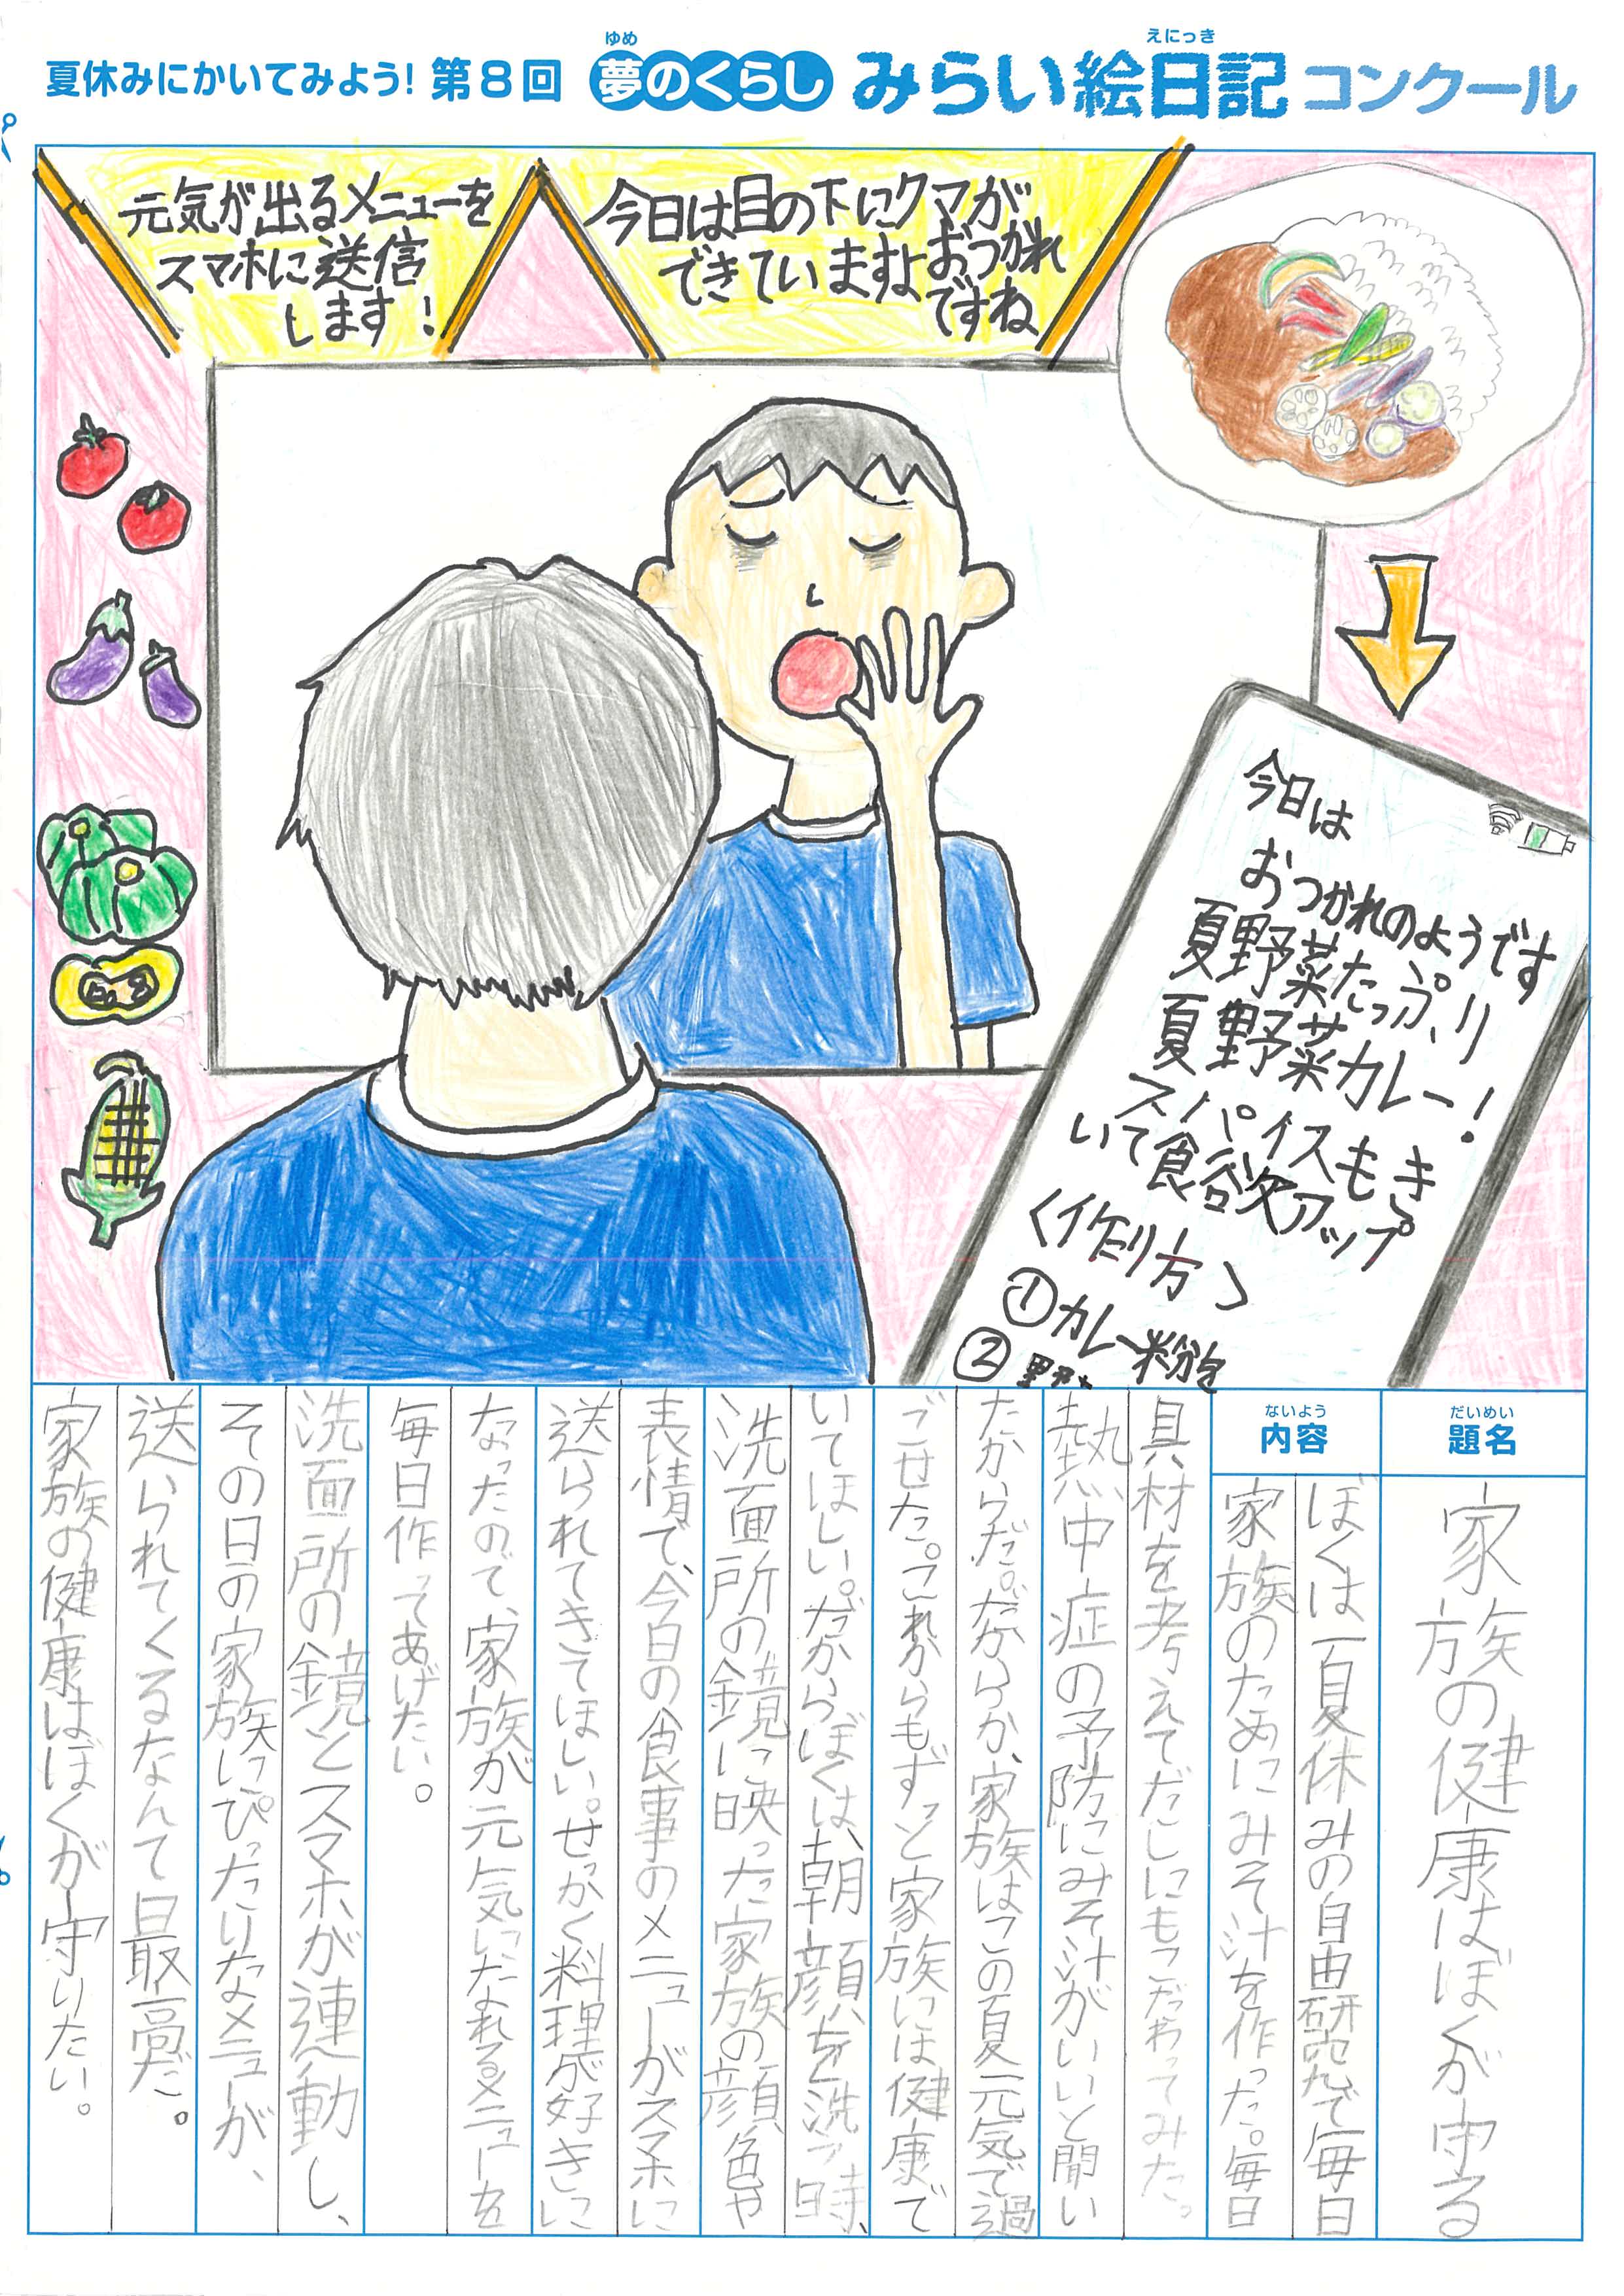 夏休みにかいてみよう！第8回 夢のくらし みらい絵日記コンクール
ゆめ
えにっき
今日は目の下にクマが
できていますよおつかれ
ですね
元気が出るメニューを
スマホに送信
します！
今日は
おつかれのようです
夏野菜たっぷり
夏野菜カレー！
スパイスもき
いて食欲アップ
〈作り方〉
①カレー粉を
②野
だいめい
題名
家族の健康はぼくが守る
ないよう
内容
ぼくは夏休みの自由研究で毎日
家族のためにみそ汁を作った。毎日
具材を考えてだしにもこだわってみた。
熱中症の予防にみそ汁がいいと聞い
たからだ。だからか、家族はこの夏元気で過
ごせた。これからもずっと家族には健康で
いてほしい。だからぼくは、朝顔を洗う時、
洗面所の鏡に映った家族の顔色や
表情で、今日の食事のメニューがスマホに
送られてきてほしい。せっかく料理が好きに
なったので、家族が元気になれるメニューを
毎日作ってあげたい。
洗面所の鏡とスマホが連動し、
その日の家族にぴったりなメニューが、
送られてくるなんて最高だ。
家族の健康はぼくが守りたい。